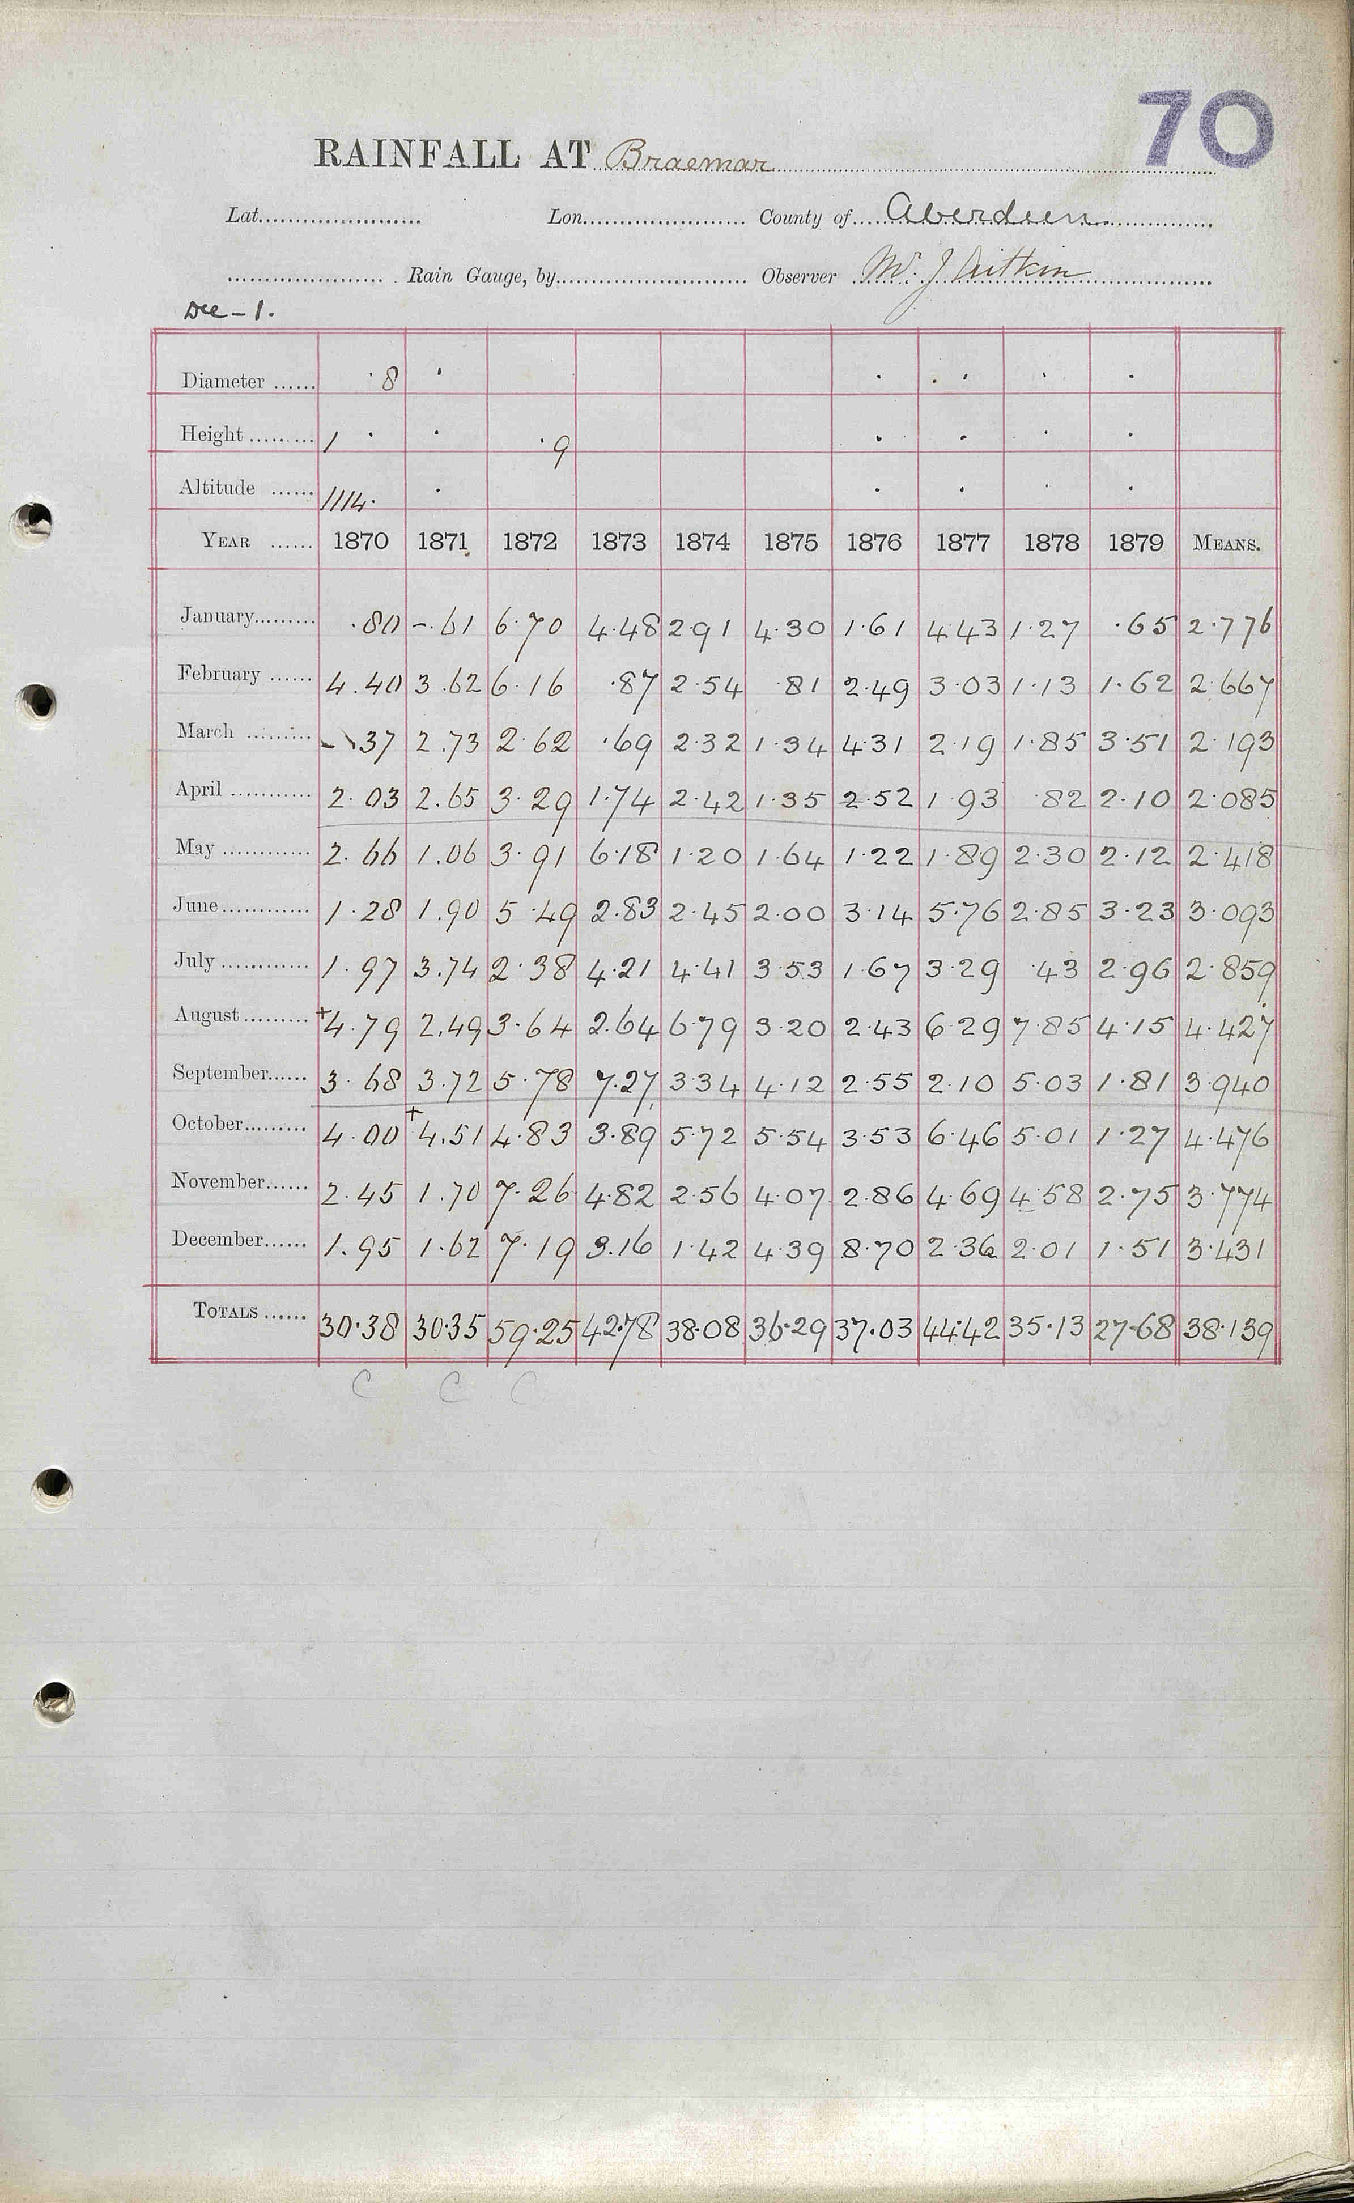 70
RAINFALL AT Braemar
Lat. Lon. County of Aberdeen
Rain Gauge, by Observer Mr. J Aitkin
Dee - 1.
Diameter 8
Height 1 9
Altitude 1114.
YEAR 1870 1871 1872 1873 1874 1875 1876 1877 1878 1879 MEANS.
January .80 -.61 6.70 4.48 2.91 4.30 1.61 4.43 1.27 .65 2.776
February 4.40 3.62 6.16 .87 2.54 .81 2.49 3.03 1.13 1.62 2.667
March .37 2.73 2.62 .69 2.32 1.34 4.31 2.19 1.85 3.51 2.193
April 2.03 2.65 3.29 1.74 2.42 1.35 2.52 1.93 .82 2.10 2.085
May 2.66 1.06 3.91 6.18 1.20 1.64 1.22 1.89 2.30 2.12 2.418
June 1.28 1.90 5.49 2.83 2.45 2.00 3.14 5.76 2.85 3.23 3.093
July 1.97 3.74 2.38 4.21 4.41 3.53 1.67 3.29 .43 2.96 2.859
August +4.79 2.49 3.64 2.64 6.79 3.20 2.43 6.29 7.85 4.15 4.427
September 3.68 3.72 5.78 7.27 3.34 4.12 2.55 2.10 5.03 1.81 3.940
October 4.00 +4.51 4.83 3.89 5.72 5.54 3.53 6.46 5.01 1.27 4.476
November 2.45 1.70 7.26 4.82 2.56 4.07 2.86 4.69 4.58 2.75 3.774
December 1.95 1.62 7.19 3.16 1.42 4.39 8.70 2.36 2.01 1.51 3.431
TOTALS 30.38 30.35 59.25 42.78 38.08 36.29 37.03 44.42 35.13 27.68 38.139
C C C